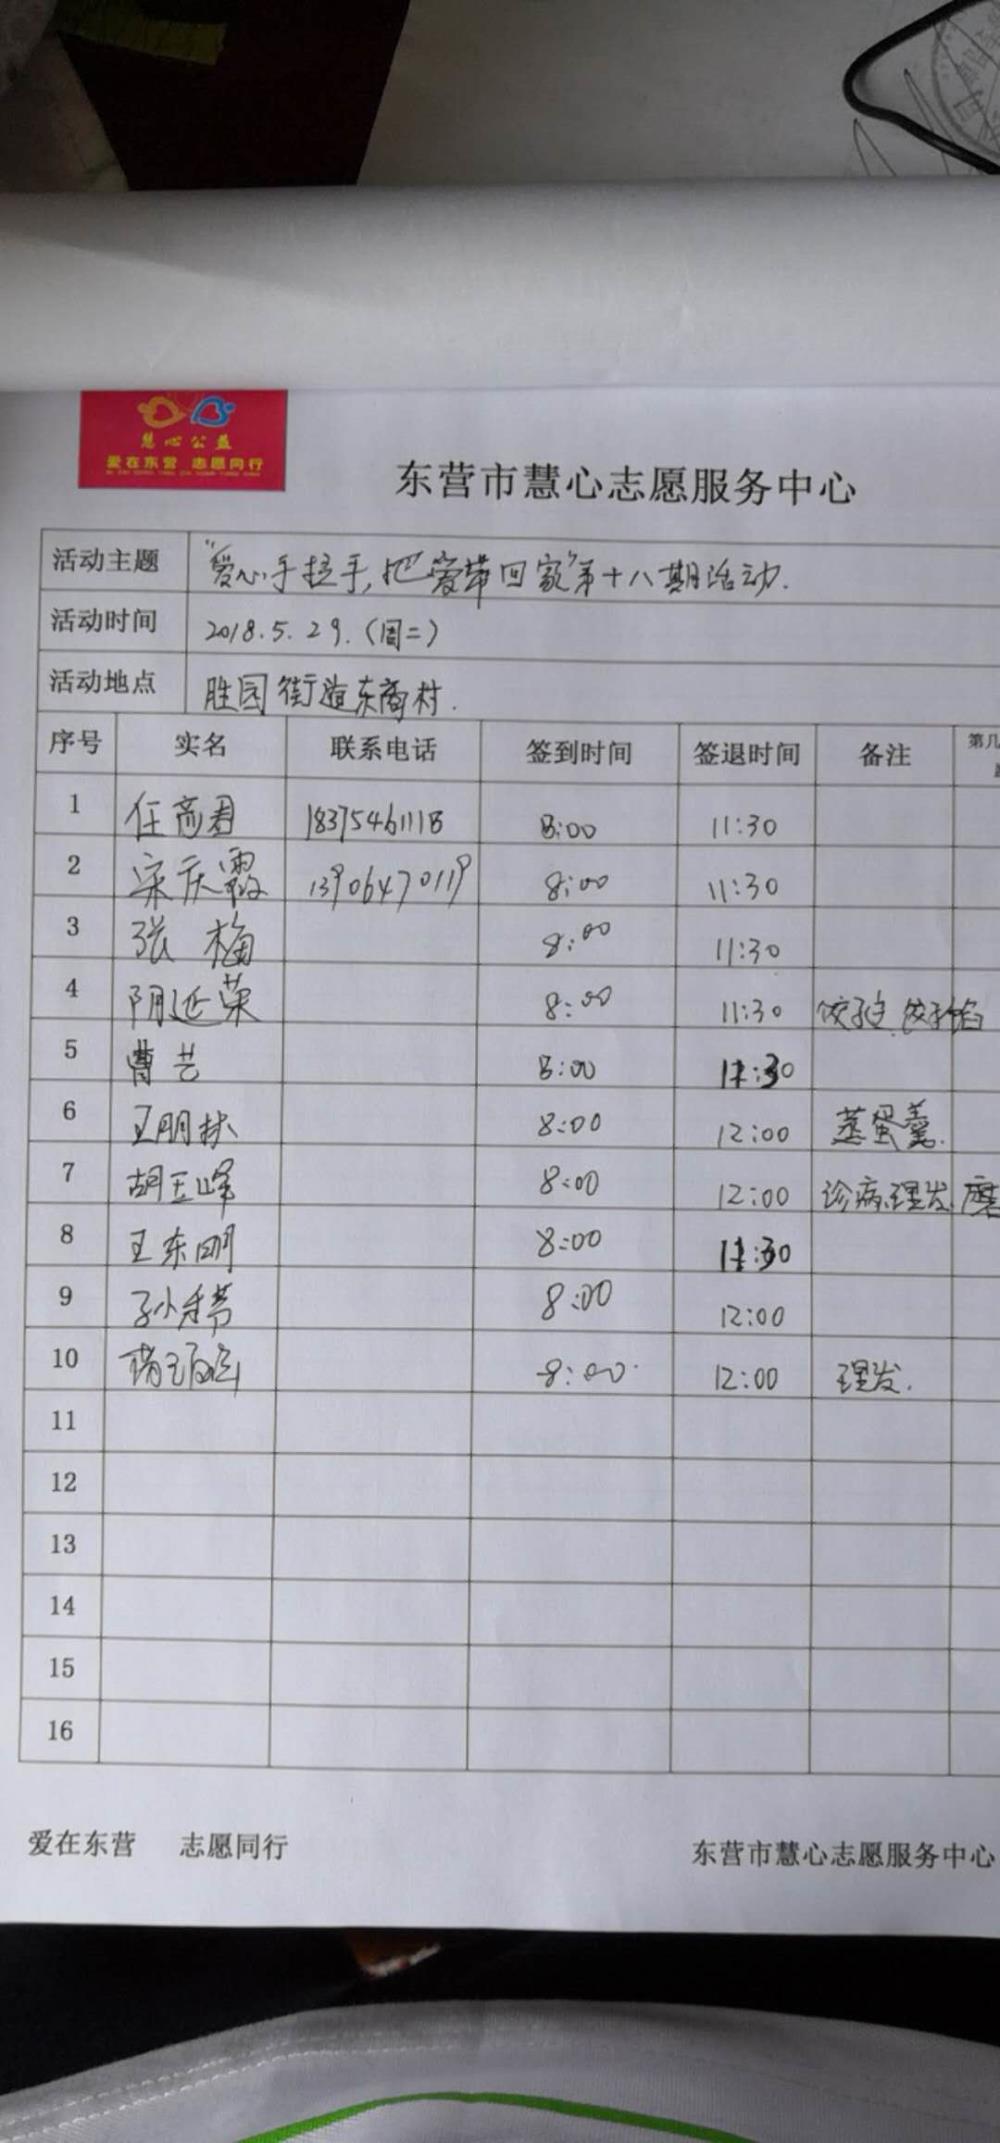 慧心公益
爱在东营 志愿同行
东营市慧心志愿服务中心
活动主题 "爱心手拉手,把爱带回家"第十八期活动.
活动时间 2018.5.29.(周二)
活动地点 胜园街道东商村.
序号 实名 联系电话 签到时间 签退时间 备注 第几
1 任商君 18375461118 8:00 11:30
2 宋庆霞 13906470119 8:00 11:30
3 张梅 8:00 11:30
4 阴延荣 8:00 11:30 饺子皮 饺子馅
5 曹艺 8:00 11:30
6 王朋林 8:00 12:00 蒸蛋羹.
7 胡玉峰 8:00 12:00 诊病.理发
8 王东明 8:00 11:30
9 孙小 8:00 12:00
10 8:00 12:00 理发.
11
12
13
14
15
16
爱在东营 志愿同行
东营市慧心志愿服务中心